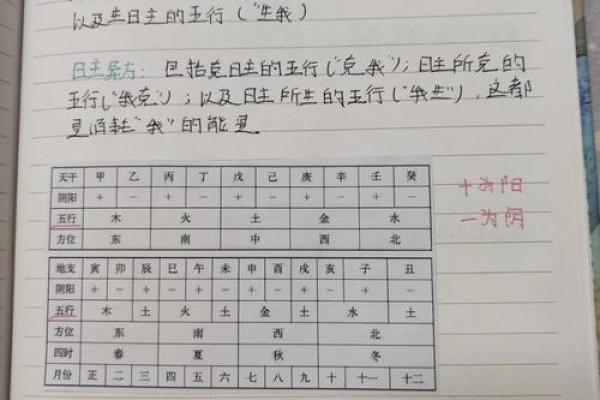 以及生日主的五行("生我")
日主异方：包括克日主的五行("克我")；日主所克的
五行("我克")；以及日主所生的五行("我生")，这都
是消耗"我"的能量
天干 甲 乙 丙 丁 戊 己 庚 辛 壬 癸
阴阳 + − + − + − + − + −
五行 木 火 土 金 水
方位 东 南 中 西 北
十为阳
一为阴
地支 寅 卯 辰 巳 午 未 申 酉 戌 亥 子 丑
阴阳 + − + − + − + − + − + −
五行 木 土 火 土 金 土 水 土
方位 东 南 西 北
四时 春 夏 秋 冬
月份 正 二 三 四 五 六 七 八 九 十 十一 十二